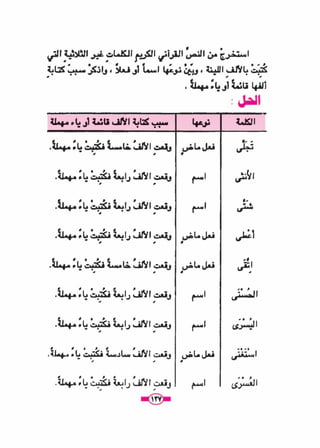 استخرج من النص القرآني الكريم الكلمات غير الثلاثية التي
كُتِبَت بالألف اللينة، وبيِّن نوعها اسما أو فعلا، واذكر سبب كتابة
ألفها قائمة أو ياء مهملة.
الحل :
الكلمة نوعها سبب كتابة الألف قائمة أو ياء مهملة
تَجَلَّى فعل ماض وقعت الألف خامسة فكُتِبَت ياء مهملة.
الأنثى اسم وقعت الألف رابعة فكُتِبَت ياء مهملة.
شَتَّى اسم وقعت الألف رابعة فكُتِبَت ياء مهملة.
أعطى فعل ماض وقعت الألف رابعة فكُتِبَت ياء مهملة.
اتَّقى فعل ماض وقعت الألف خامسة فكُتِبَت ياء مهملة.
الحُسْنَى اسم وقعت الألف رابعة فكُتِبَت ياء مهملة.
اليُسْرَى اسم وقعت الألف رابعة فكُتِبَت ياء مهملة.
استَغْنَى فعل ماض وقعت الألف سادسة فكُتِبَت ياء مهملة.
العُسْرَى اسم وقعت الألف رابعة فكُتِبَت ياء مهملة.
١٢٧